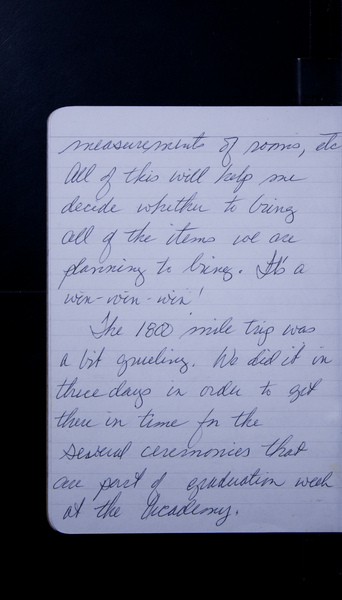 measurements of rooms, etc
All of this will help me
decide whether to bring
all of the items we are
planning to bring. It's a
win-win-win!
The 1800 mile trip was
a bit grueling. We did it in
three days in order to get
there in time for the
several ceremonies that
are part of graduation week
at the Academy.